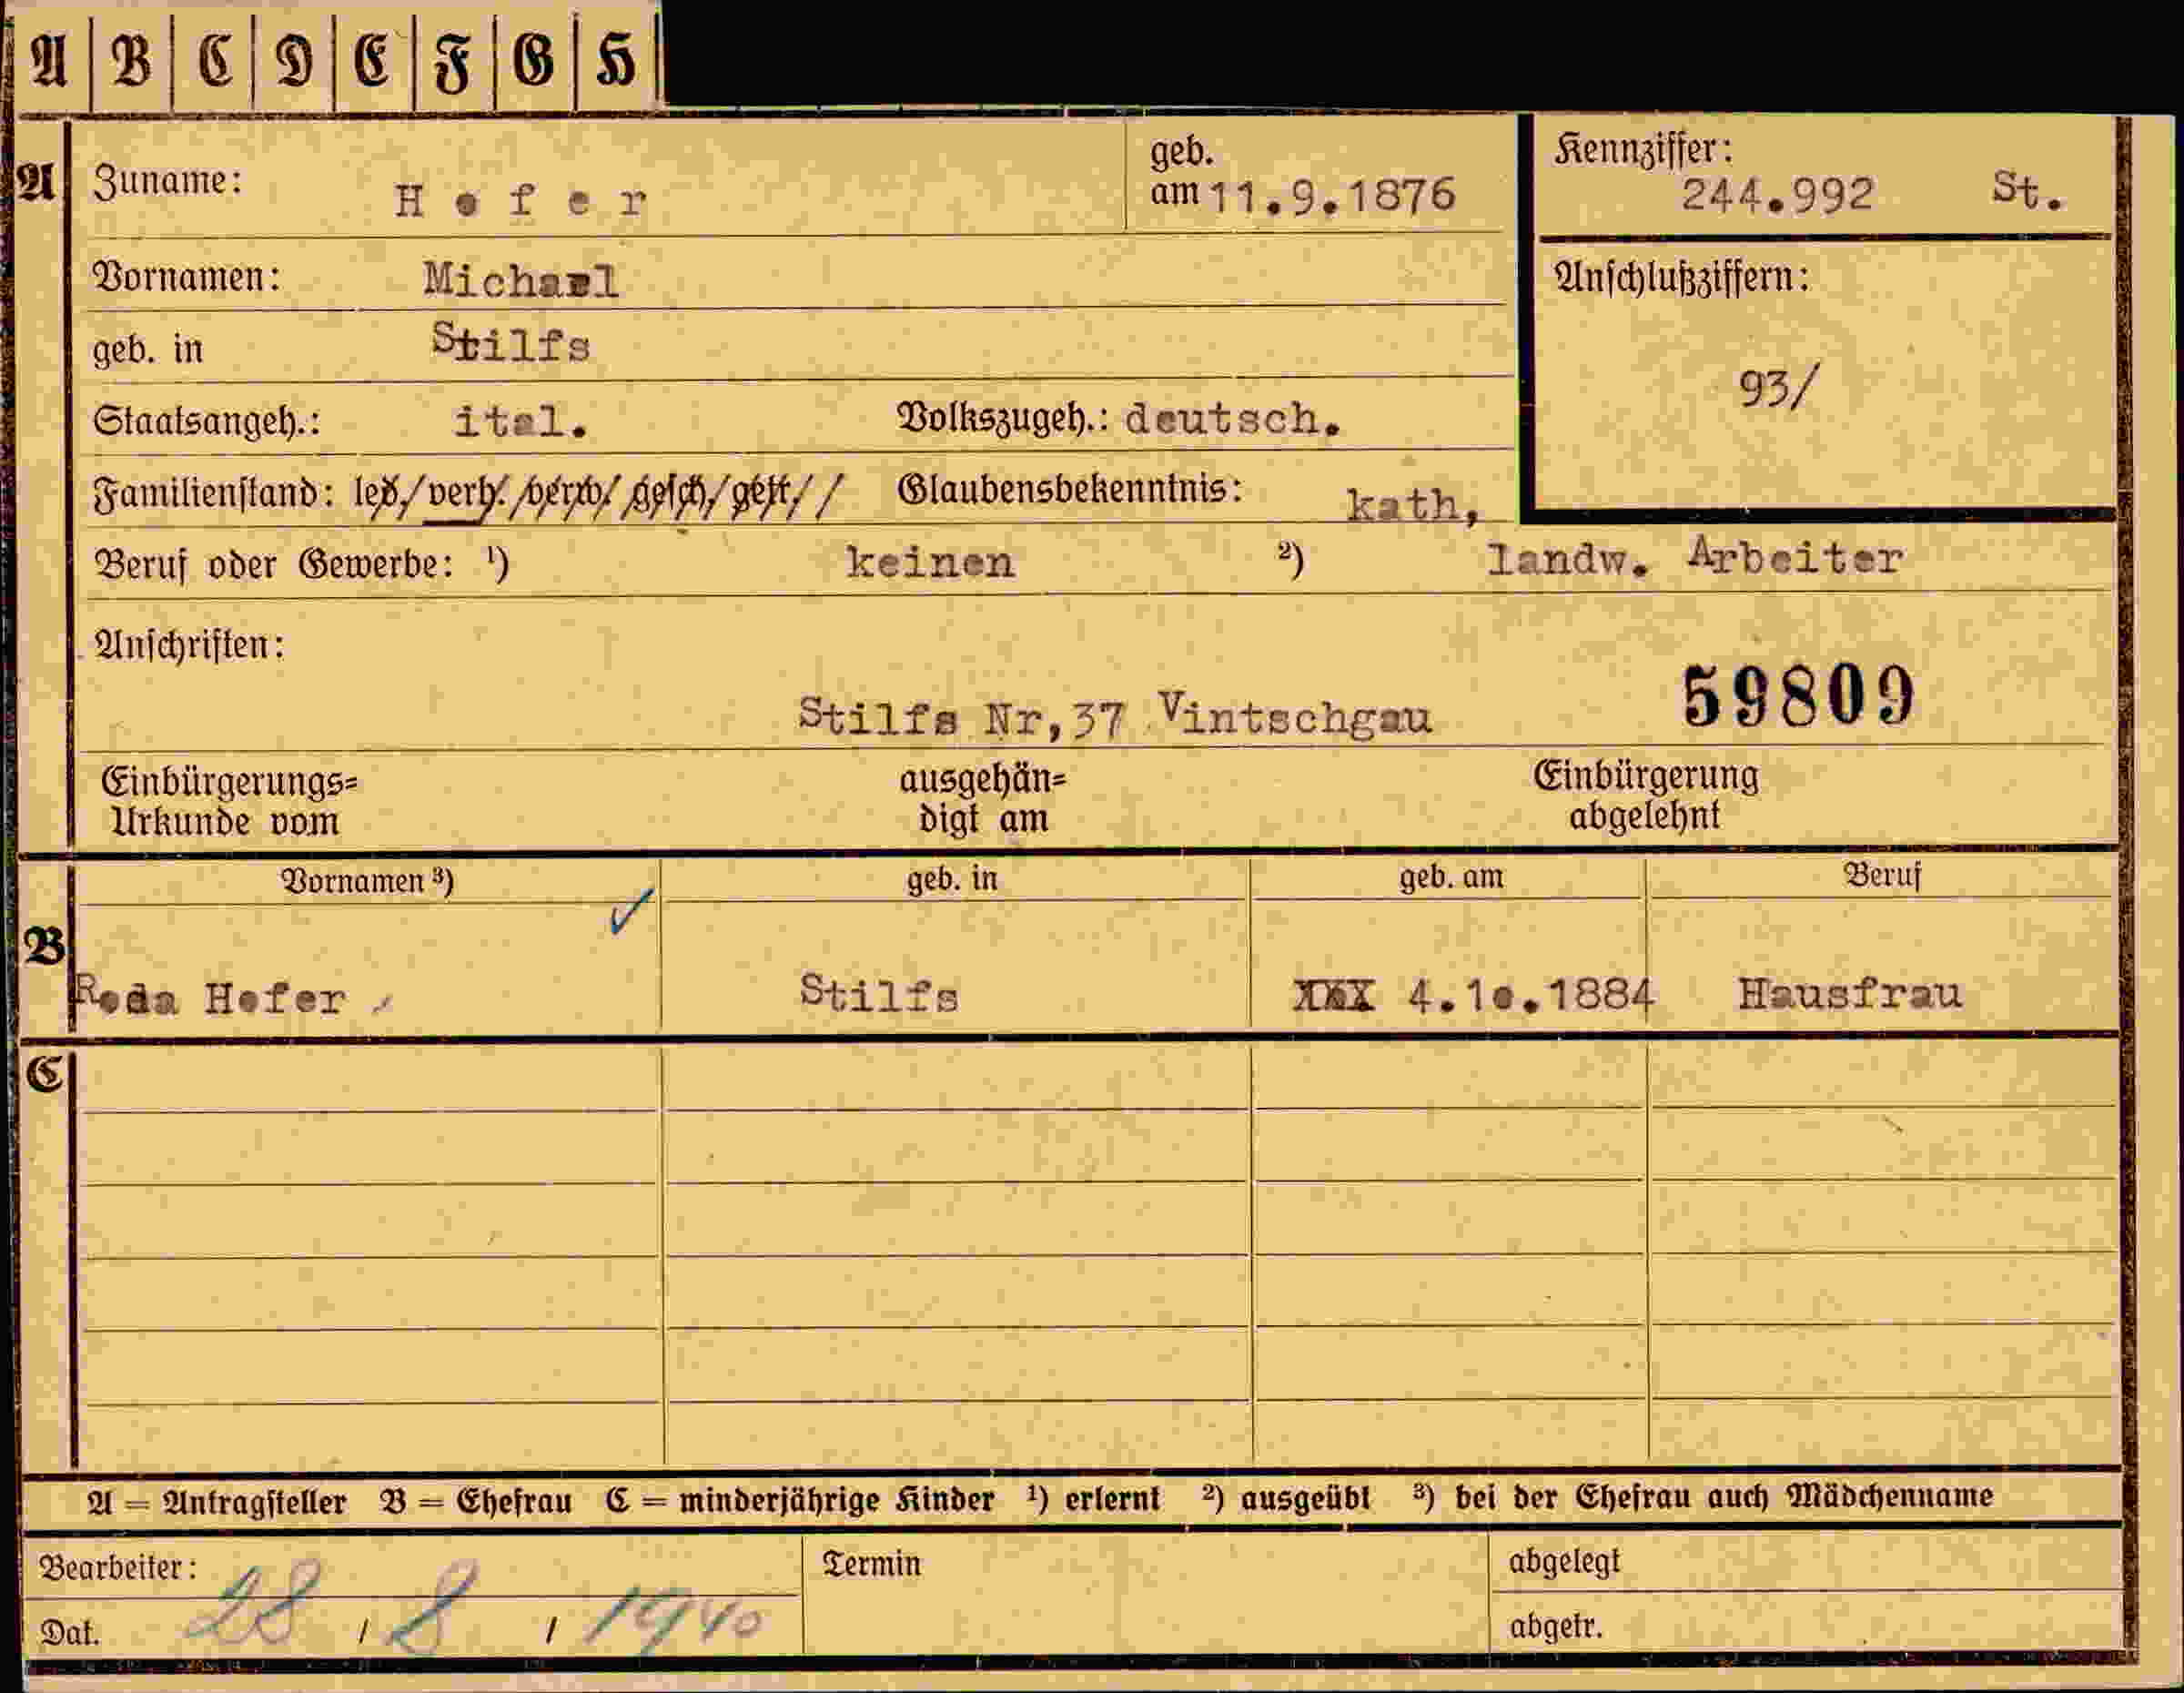 A B C D E F G H
A Zuname: Hofer geb. am 11.9.1876 Kennziffer: 244.992 St.
Vornamen: Michael Anschlußziffern:
geb. in Stilfs 93/
Staatsangeh.: ital. Volkszugeh.: deutsch.
Familienstand: led./verh./verw./gesch./getr.// Glaubensbekenntnis: kath,
Beruf oder Gewerbe: ¹) keinen ²) landw. Arbeiter
Anschriften:
Stilfs Nr,37 Vintschgau 59809
Einbürgerungs= ausgehän= Einbürgerung
Urkunde vom digt am abgelehnt
Vornamen ³) geb. in geb. am Beruf
B
Roda Hofer Stilfs XXX 4.10.1884 Hausfrau
C
A = Antragsteller B = Ehefrau C = minderjährige Kinder ¹) erlernt ²) ausgeübt ³) bei der Ehefrau auch Mädchenname
Bearbeiter: Termin abgelegt
Dat. 28 / 8 / 1940 abgetr.